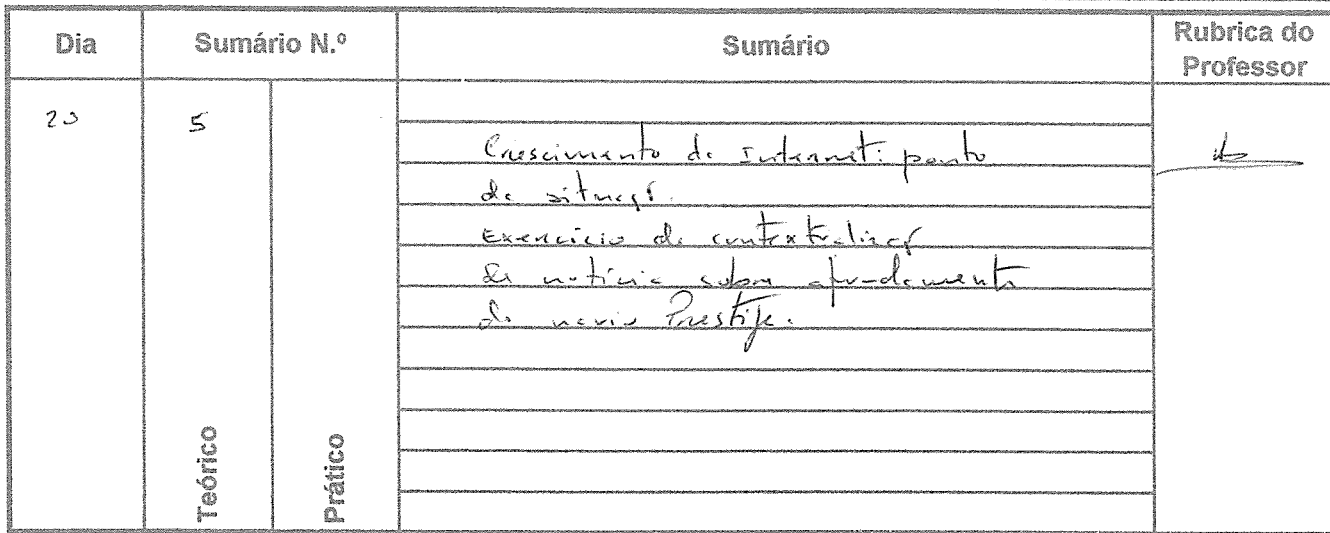 Dia Sumário N.º Sumário Rubrica do Professor
20 5
Crescimento da Internet: ponto
de situaçã.
Exercício de contextualizaçã
da notícia sobre afundamento
do navio Prestige.
Teórico Prático